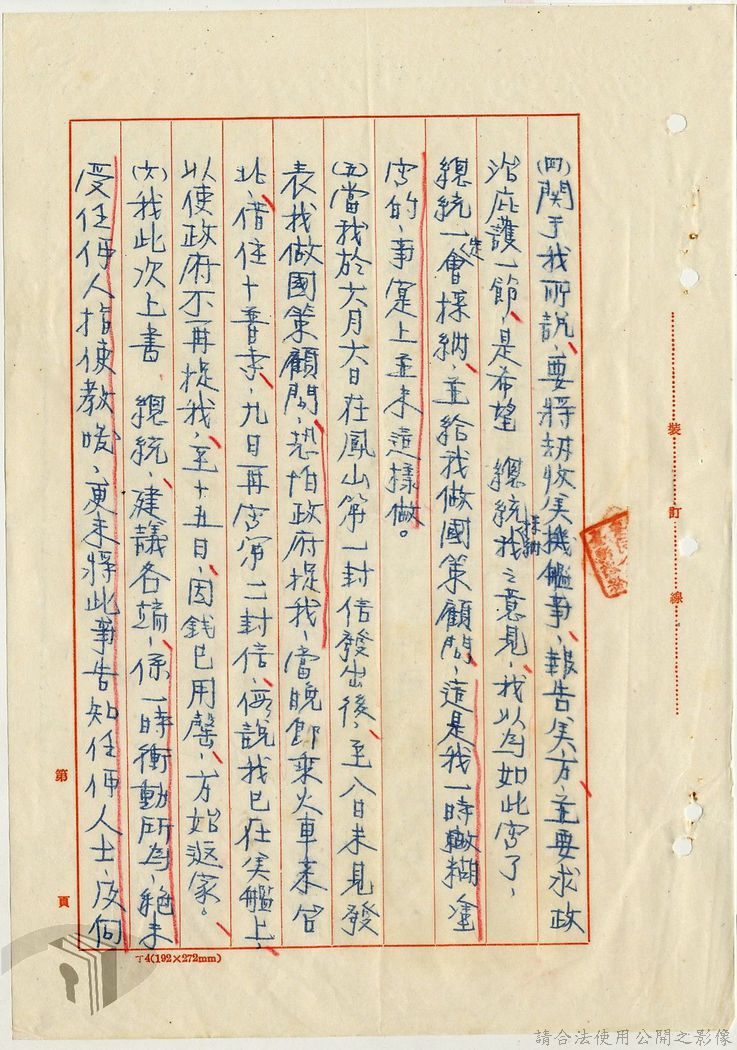 (四)関于我所說、要將劫收美機艦事、報告美方、並要求政
治庇護一節、是希望 總統採納我之意見、我以為如此寫了、
總統一定會採納、並給我做國策顧問、這是我一時糊糊塗
寫的、事寔上並未這樣做。
(五)當我於六月六日在鳳山第一封信發出後、至八日未見發
表我做國策顧問、恐怕政府捉我、當晚即乘火車來台
北、借住十普寺、九日再寫第二封信、假說我已在美艦上、
以使政府不再捉我、至十五日、因錢已用罄、方始返家。
(六)我此次上書 總統、建議各端、係一時衝動所為、絕未
受任何人指使教唆、更未將此事告知任何人士、及向
裝
訂
線
第
頁
丁4(192×272mm)
請合法使用公開之影像